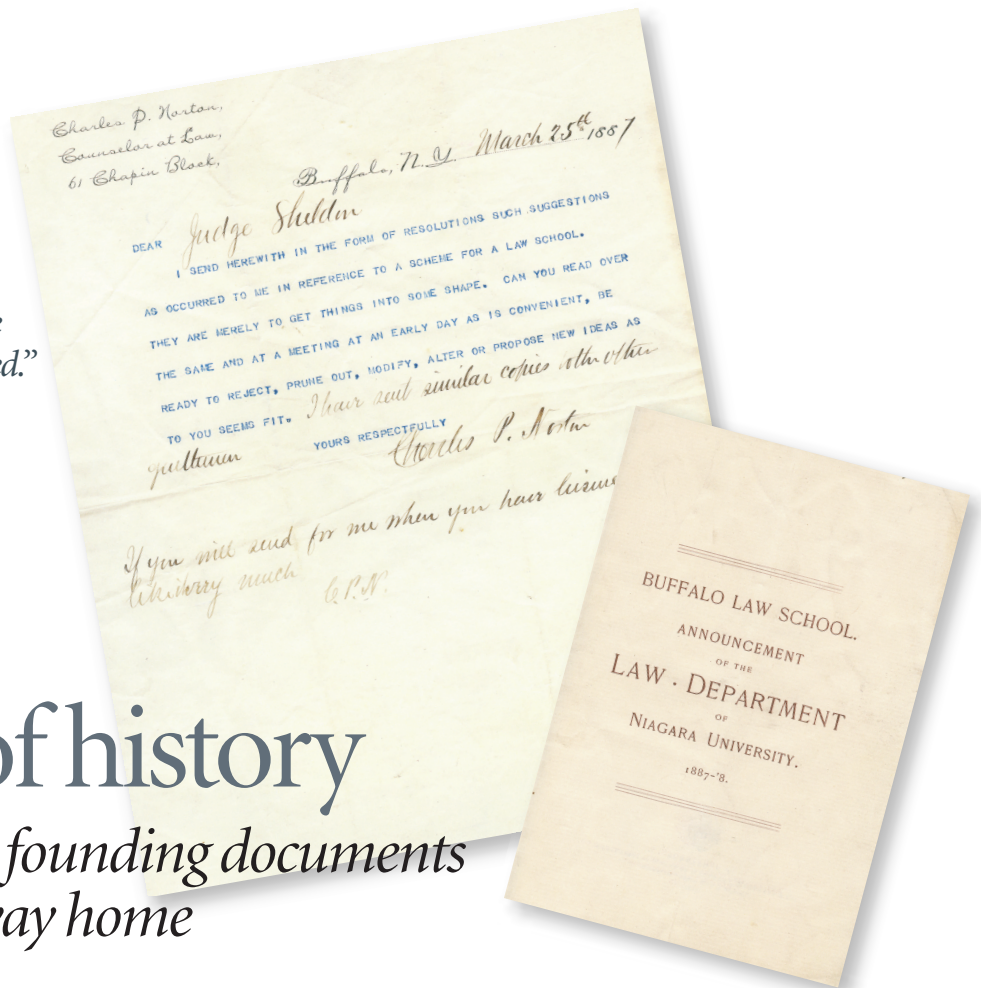 Charles P. Norton,
Counselor at Law,
61 Chapin Block,
Buffalo, N.Y. March 25th 1887
DEAR Judge Sheldon
I SEND HEREWITH IN THE FORM OF RESOLUTIONS SUCH SUGGESTIONS
AS OCCURRED TO ME IN REFERENCE TO A SCHEME FOR A LAW SCHOOL.
THEY ARE MERELY TO GET THINGS INTO SOME SHAPE. CAN YOU READ OVER
THE SAME AND AT A MEETING AT AN EARLY DAY AS IS CONVENIENT, BE
READY TO REJECT, PRUNE OUT, MODIFY, ALTER OR PROPOSE NEW IDEAS AS
TO YOU SEEMS FIT. I have sent similar copies other
gentlemen YOURS RESPECTFULLY
Charles P. Norton
If you will send for me when you have leisure
much C.P.N.
ed.”
BUFFALO LAW SCHOOL.
ANNOUNCEMENT
OF THE
LAW · DEPARTMENT
OF
NIAGARA UNIVERSITY.
1887-'8.
of history
founding documents
way home